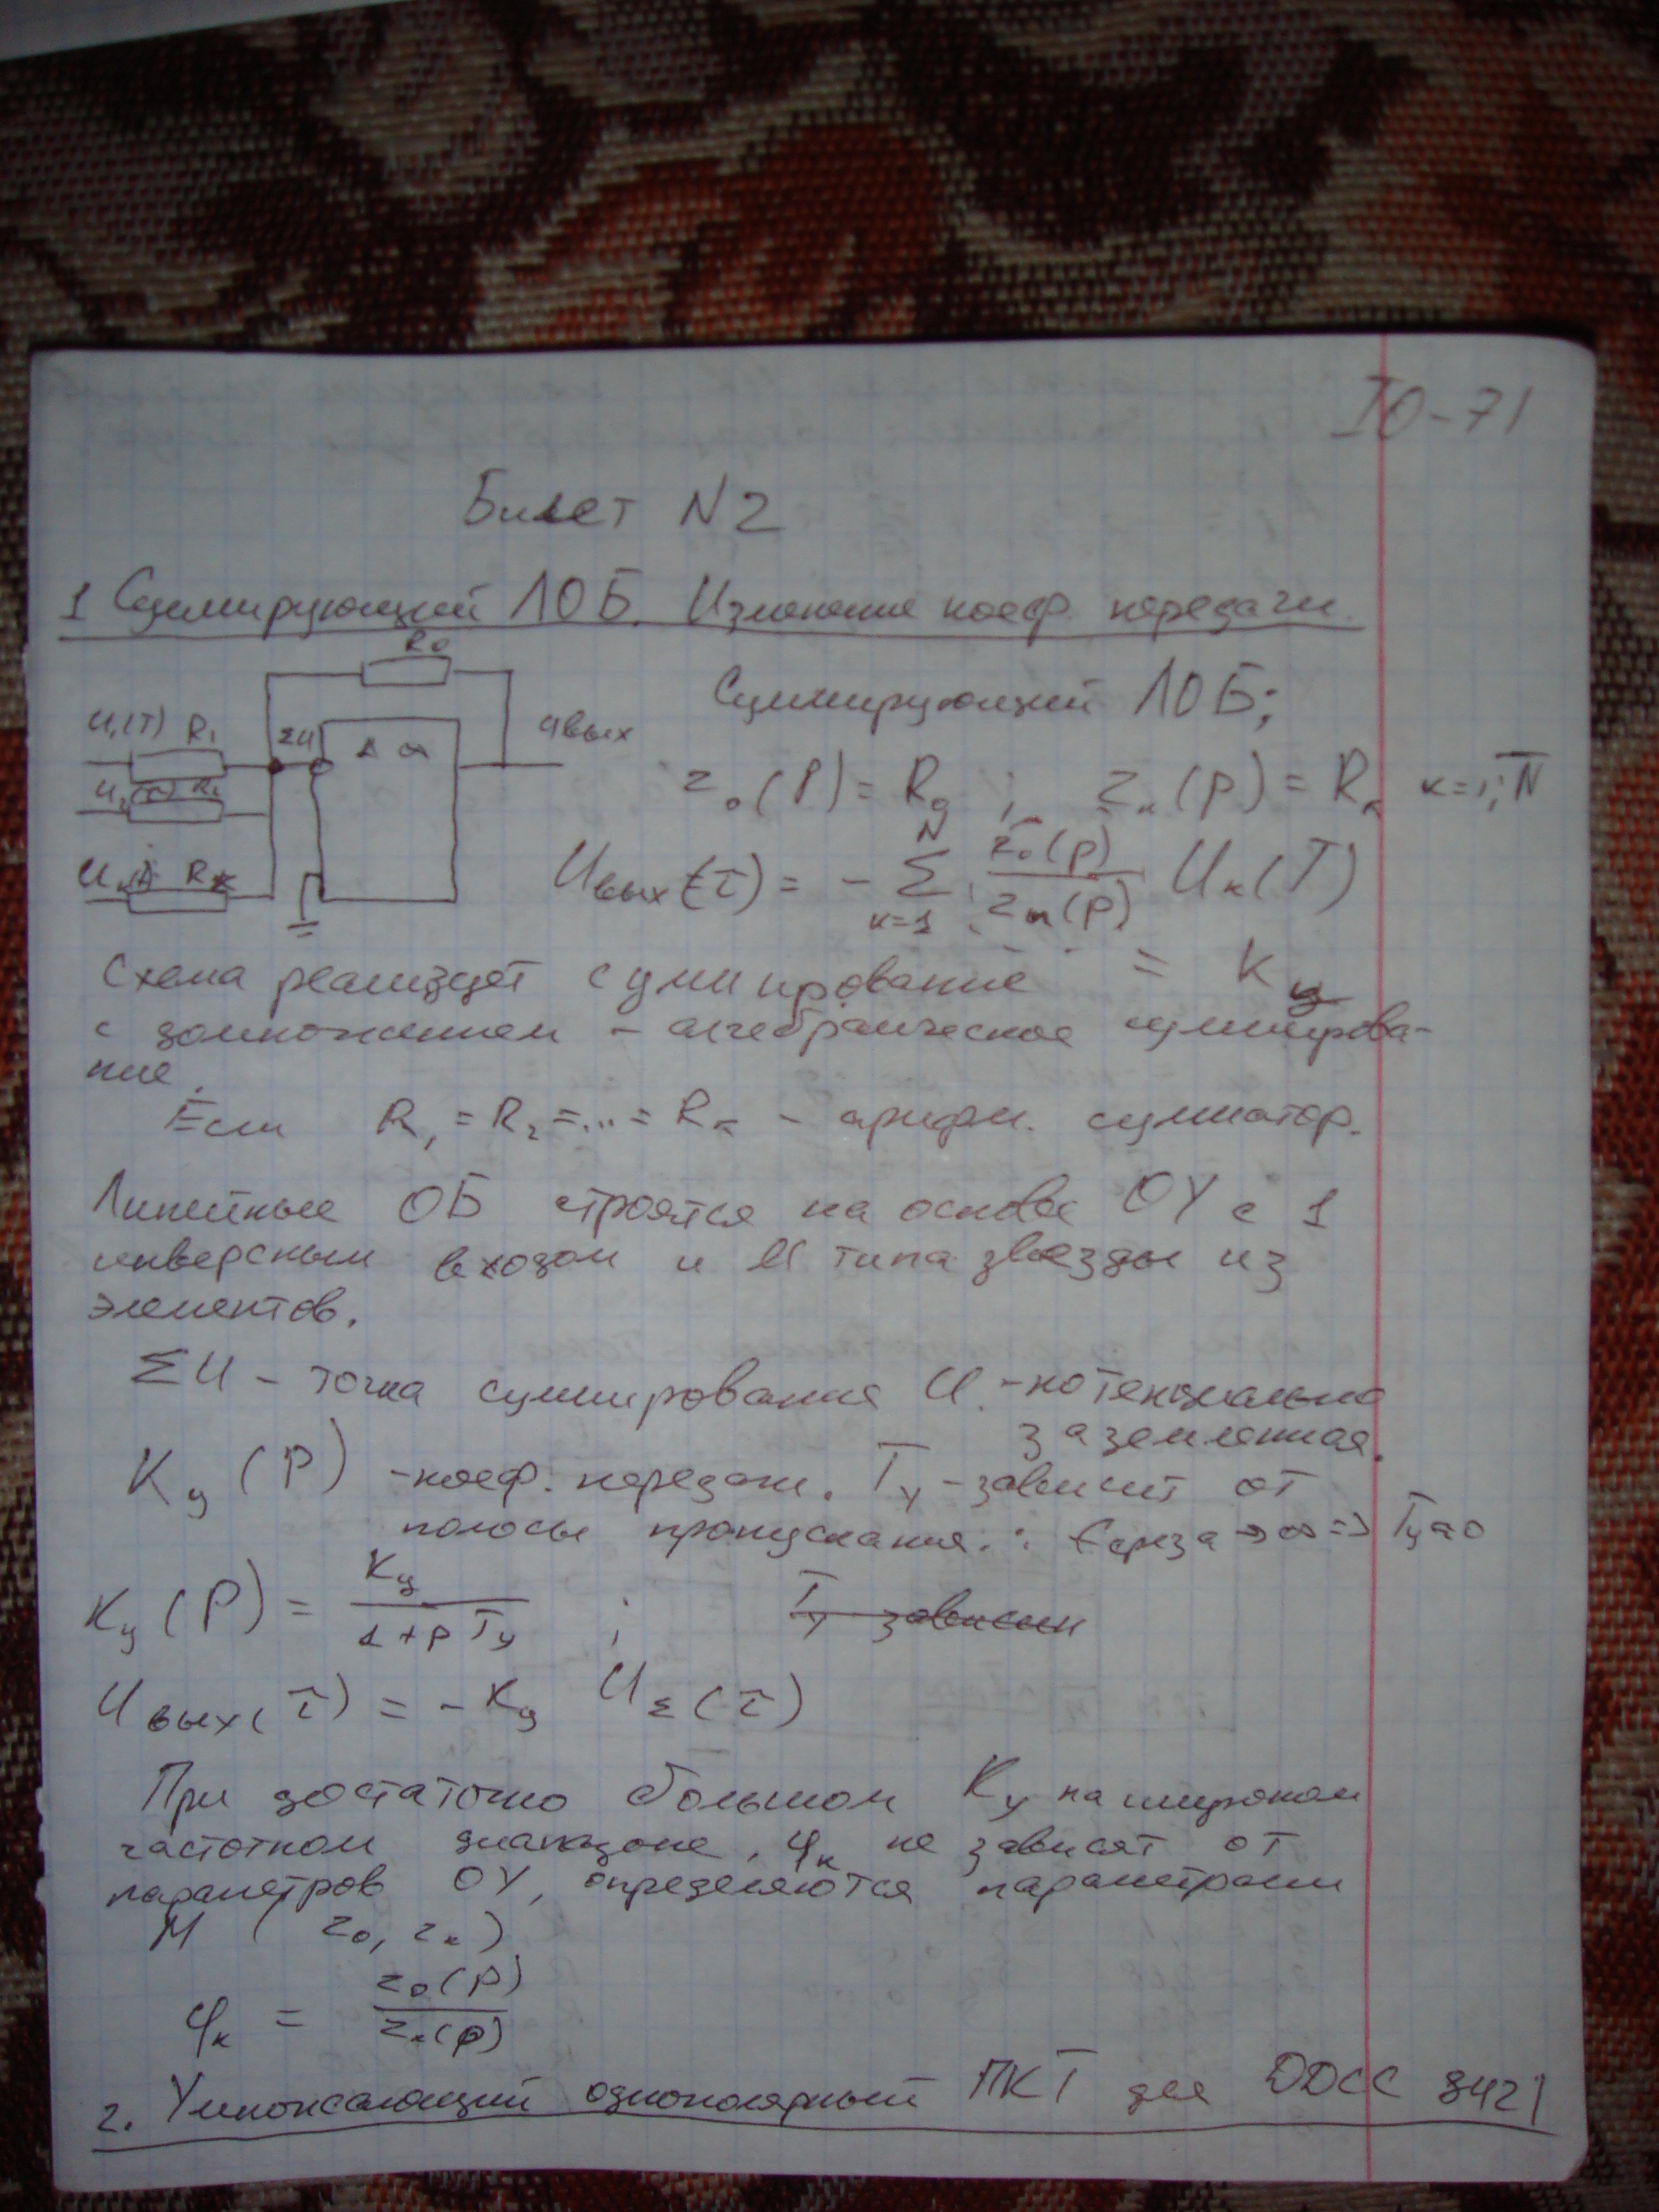 ІО-71
Билет N2
1 Сумирующий ЛОБ. Изменение коеф. передачи.
R0
Сумирующий ЛОБ;
U1(T) R1 ΣU 1 ∞ Uвых
U2(T) R2
z0(P) = R0 ; zк(p) = Rк к=1;N
Uк R
Uвых(τ) = - Σ к=1 N z0(p)/zк(p) Uк(T)
Схема реализует сумирование = Kу
с домножением - алгебраическое сумирова-
ние.
Если R1 = R2 =...= Rк - арифм. сумматор.
Линейные ОБ строятся на основе ОУ с 1
инверсным входом и М типа звезды из
элементов.
ΣU - точка суммирования U. - потенциально
заземленная.
Kу (P) - коеф. передачи. Tу - зависит от
полосы пропускания. : fсреза → ∞ => Tу≈0
Kу (P) = Kу/1+pTу ; Tу зависим
Uвых(τ) = - Kу UΣ(τ)
При достаточно большом Kу на широком
частотном диапазоне, φк не зависят от
параметров ОУ, определяются параметрами
М ( z0, zк)
φк = z0(p)/zк(p)
2. Умножающий однополярный ПКТ для DDCC 8421